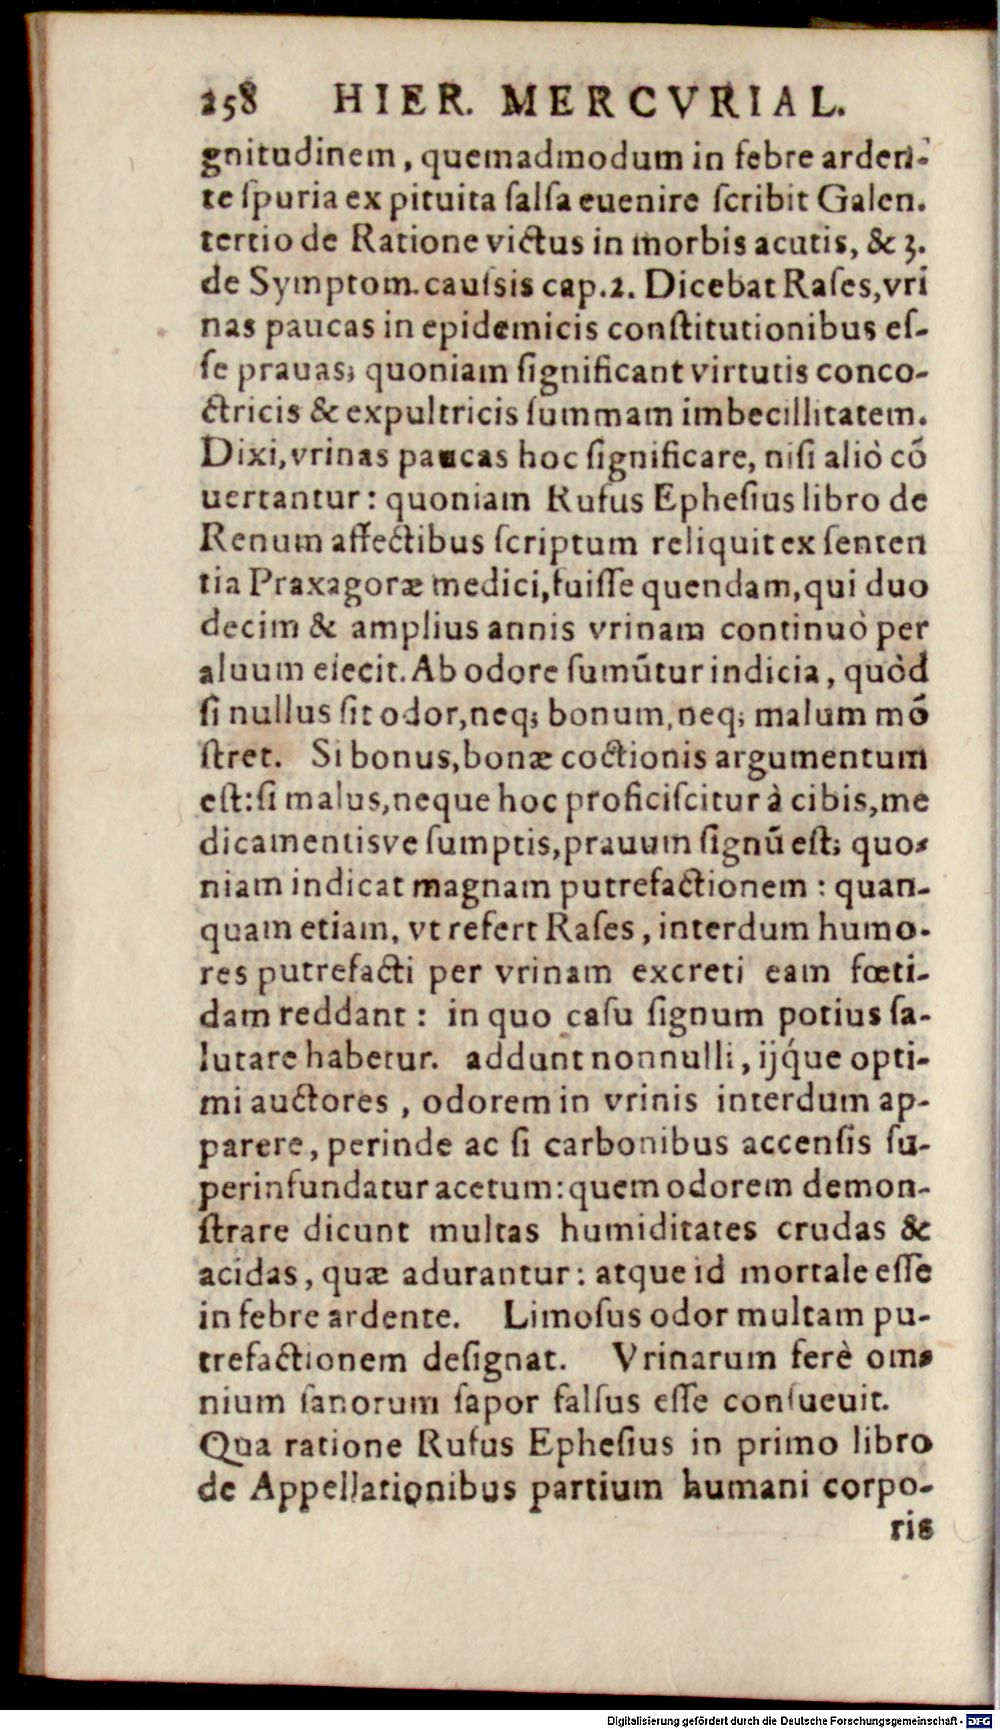 258 HIER. MERCVRIAL.
gnitudinem, quemadmodum in febre arden-
te ſpuria ex pituita ſalſa euenire ſcribit Galen.
tertio de Ratione victus in morbis acutis, & 3.
de Symptom. cauſsis cap. 2. Dicebat Raſes, vri
nas paucas in epidemicis conſtitutionibus eſ-
ſe prauas; quoniam ſignificant virtutis conco-
ctricis & expultricis ſummam imbecillitatem.
Dixi, vrinas paucas hoc ſignificare, niſi aliò cõ
uertantur: quoniam Rufus Epheſius libro de
Renum affectibus ſcriptum reliquit ex ſenten
tia Praxagoræ medici, fuiſſe quendam, qui duo
decim & amplius annis vrinam continuò per
aluum eiecit. Ab odore ſumũtur indicia, quòd
ſi nullus ſit odor, neq; bonum, neq; malum mõ
ſtret. Si bonus, bonæ coctionis argumentum
eſt: ſi malus, neque hoc proficiſcitur à cibis, me
dicamentisve ſumptis, prauum ſignũ eſt; quo-
niam indicat magnam putrefactionem: quan-
quam etiam, vt refert Raſes, interdum humo-
res putrefacti per vrinam excreti eam fœti-
dam reddant: in quo caſu ſignum potius ſa-
lutare habetur. addunt nonnulli, ijq́ue opti-
mi auctores, odorem in vrinis interdum ap-
parere, perinde ac ſi carbonibus accenſis ſu-
perinfundatur acetum: quem odorem demon-
ſtrare dicunt multas humiditates crudas &
acidas, quæ adurantur: atque id mortale eſſe
in febre ardente. Limoſus odor multam pu-
trefactionem deſignat. Vrinarum ferè om-
nium ſanorum ſapor ſalſus eſſe conſueuit.
Qua ratione Rufus Epheſius in primo libro
de Appellationibus partium humani corpo-
ris
Digitalisierung gefördert durch die Deutsche Forschungsgemeinschaft - DFG